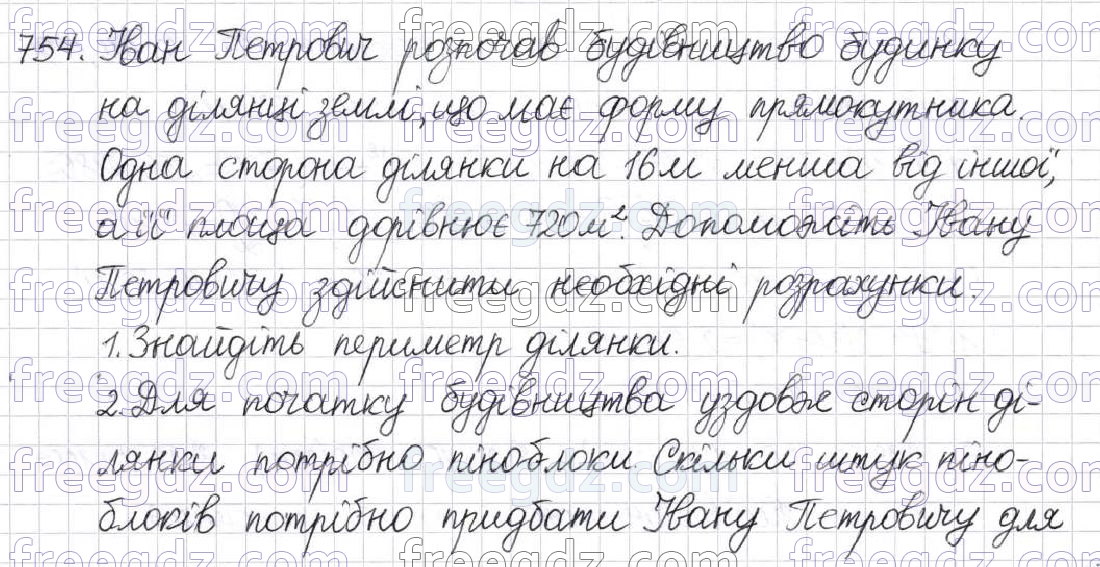 754. Іван Петрович розпочав будівництво будинку
на ділянці землі, що має форму прямокутника.
Одна сторона ділянки на 16м менша від іншої,
а її площа дорівнює 720м². Допоможіть Івану
Петровичу здійснити необхідні розрахунки.
1. Знайдіть периметр ділянки.
2. Для початку будівництва уздовж сторін ді-
лянки потрібно піноблоки Скільки штук піно-
блоків потрібно придбати Івану Петровичу для